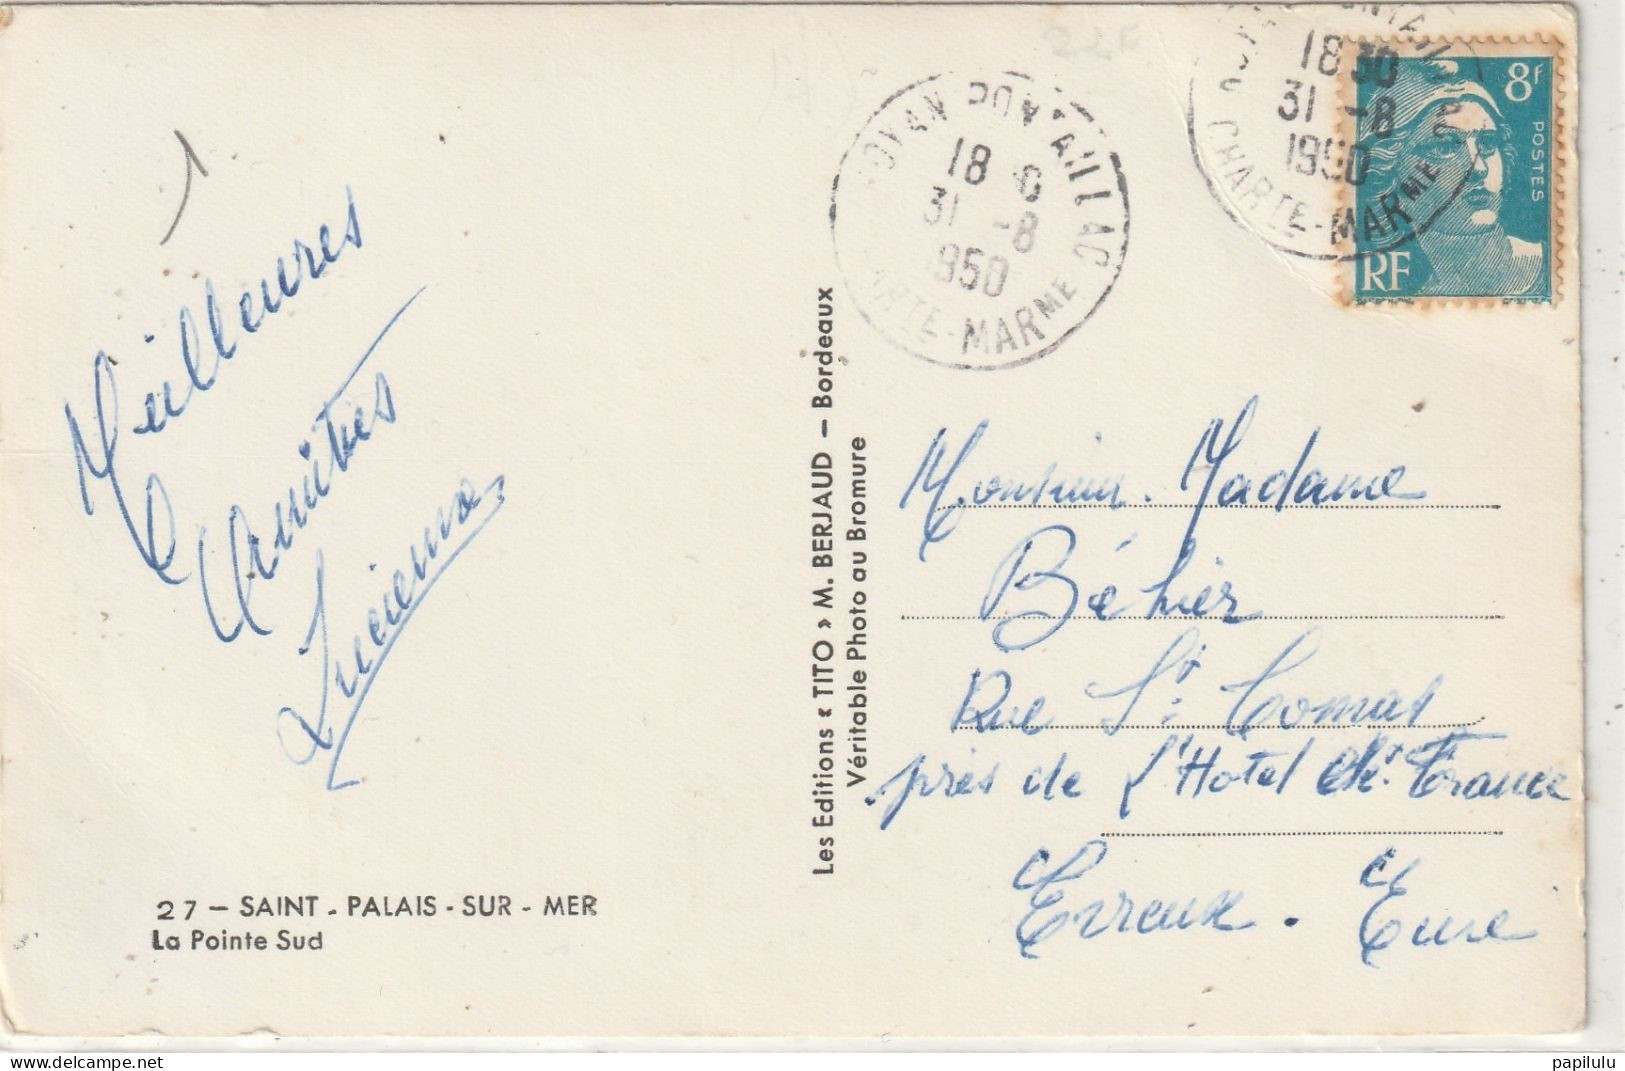 ROYAN PONTAILLAC
18 30
31 -8
1950
CHARTE-MARME
8f
POSTES
RF
OYAN PONTAILLAC
18
31 -8
950
ARTE-MARME
Meilleures
Amitiés
Lucienne
Les Editions « TITO » M. BERJAUD — Bordeaux
Véritable Photo au Bromure
Monsieur. Madame
Béhier
Rue St. Tomas
près de L'Hotel de France
Evreux. Eure
27 — SAINT - PALAIS - SUR - MER
La Pointe Sud
papilulu